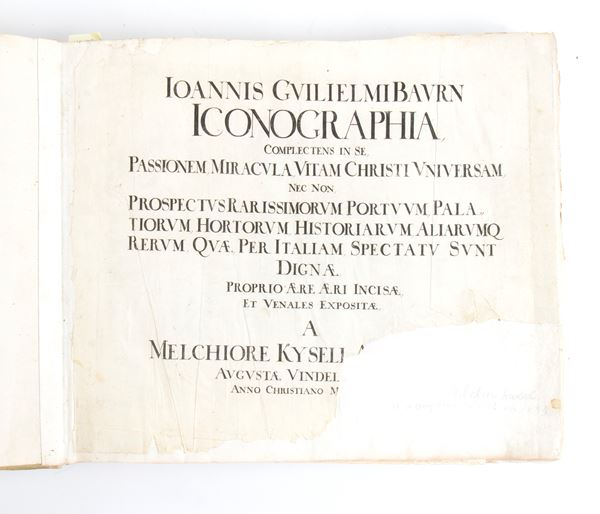 IOANNIS GVILIELMI BAVRN
ICONOGRAPHIA,
COMPLECTENS IN SE,
PASSIONEM, MIRACVLA, VITAM CHRISTI VNIVERSAM,
NEC NON
PROSPECTVS RARISSIMORVM PORTVVM, PALA„
TIORVM, HORTORVM, HISTORIARVM, ALIARVMQ
RERVM, QVÆ, PER ITALIAM, SPECTATV SVNT
DIGNÆ.
PROPRIO ÆRE ÆRI INCISÆ,
ET VENALES EXPOSITÆ,
A
MELCHIORE KYSELL
AVGVSTÆ VINDEL
ANNO CHRISTIANO M